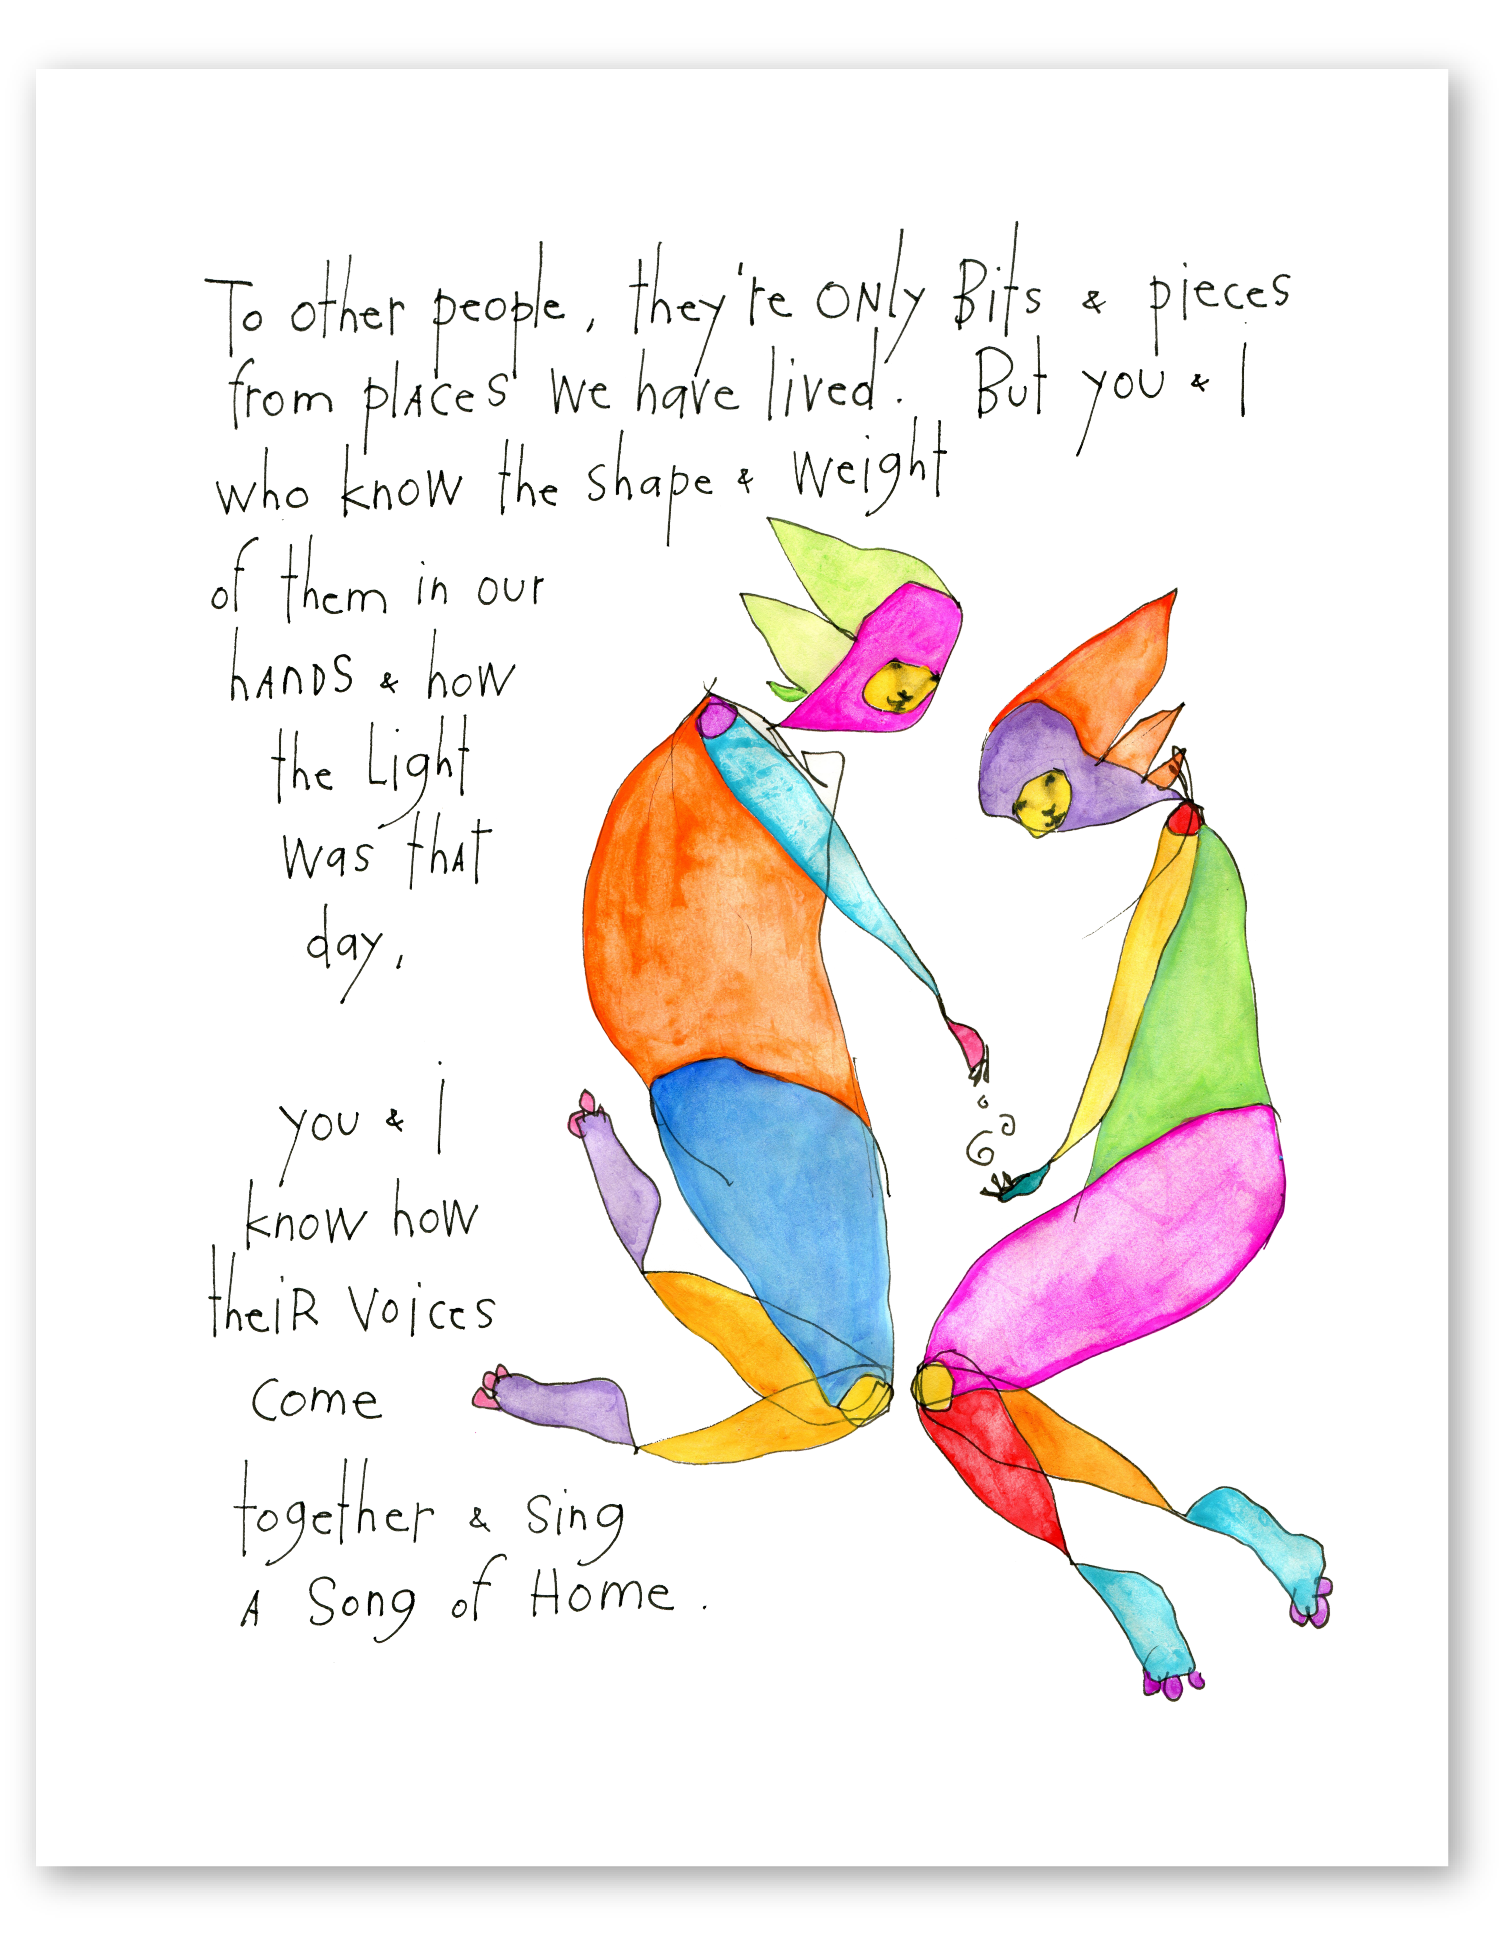 To other people, they're ONly Bits & pieces
from plAces we have lived. But you & I
who know the shape & weight
of them in our
hANDS & how
the Light
was thAt
day,
you & I
know how
theiR Voices
come
together & sing
A Song of Home.